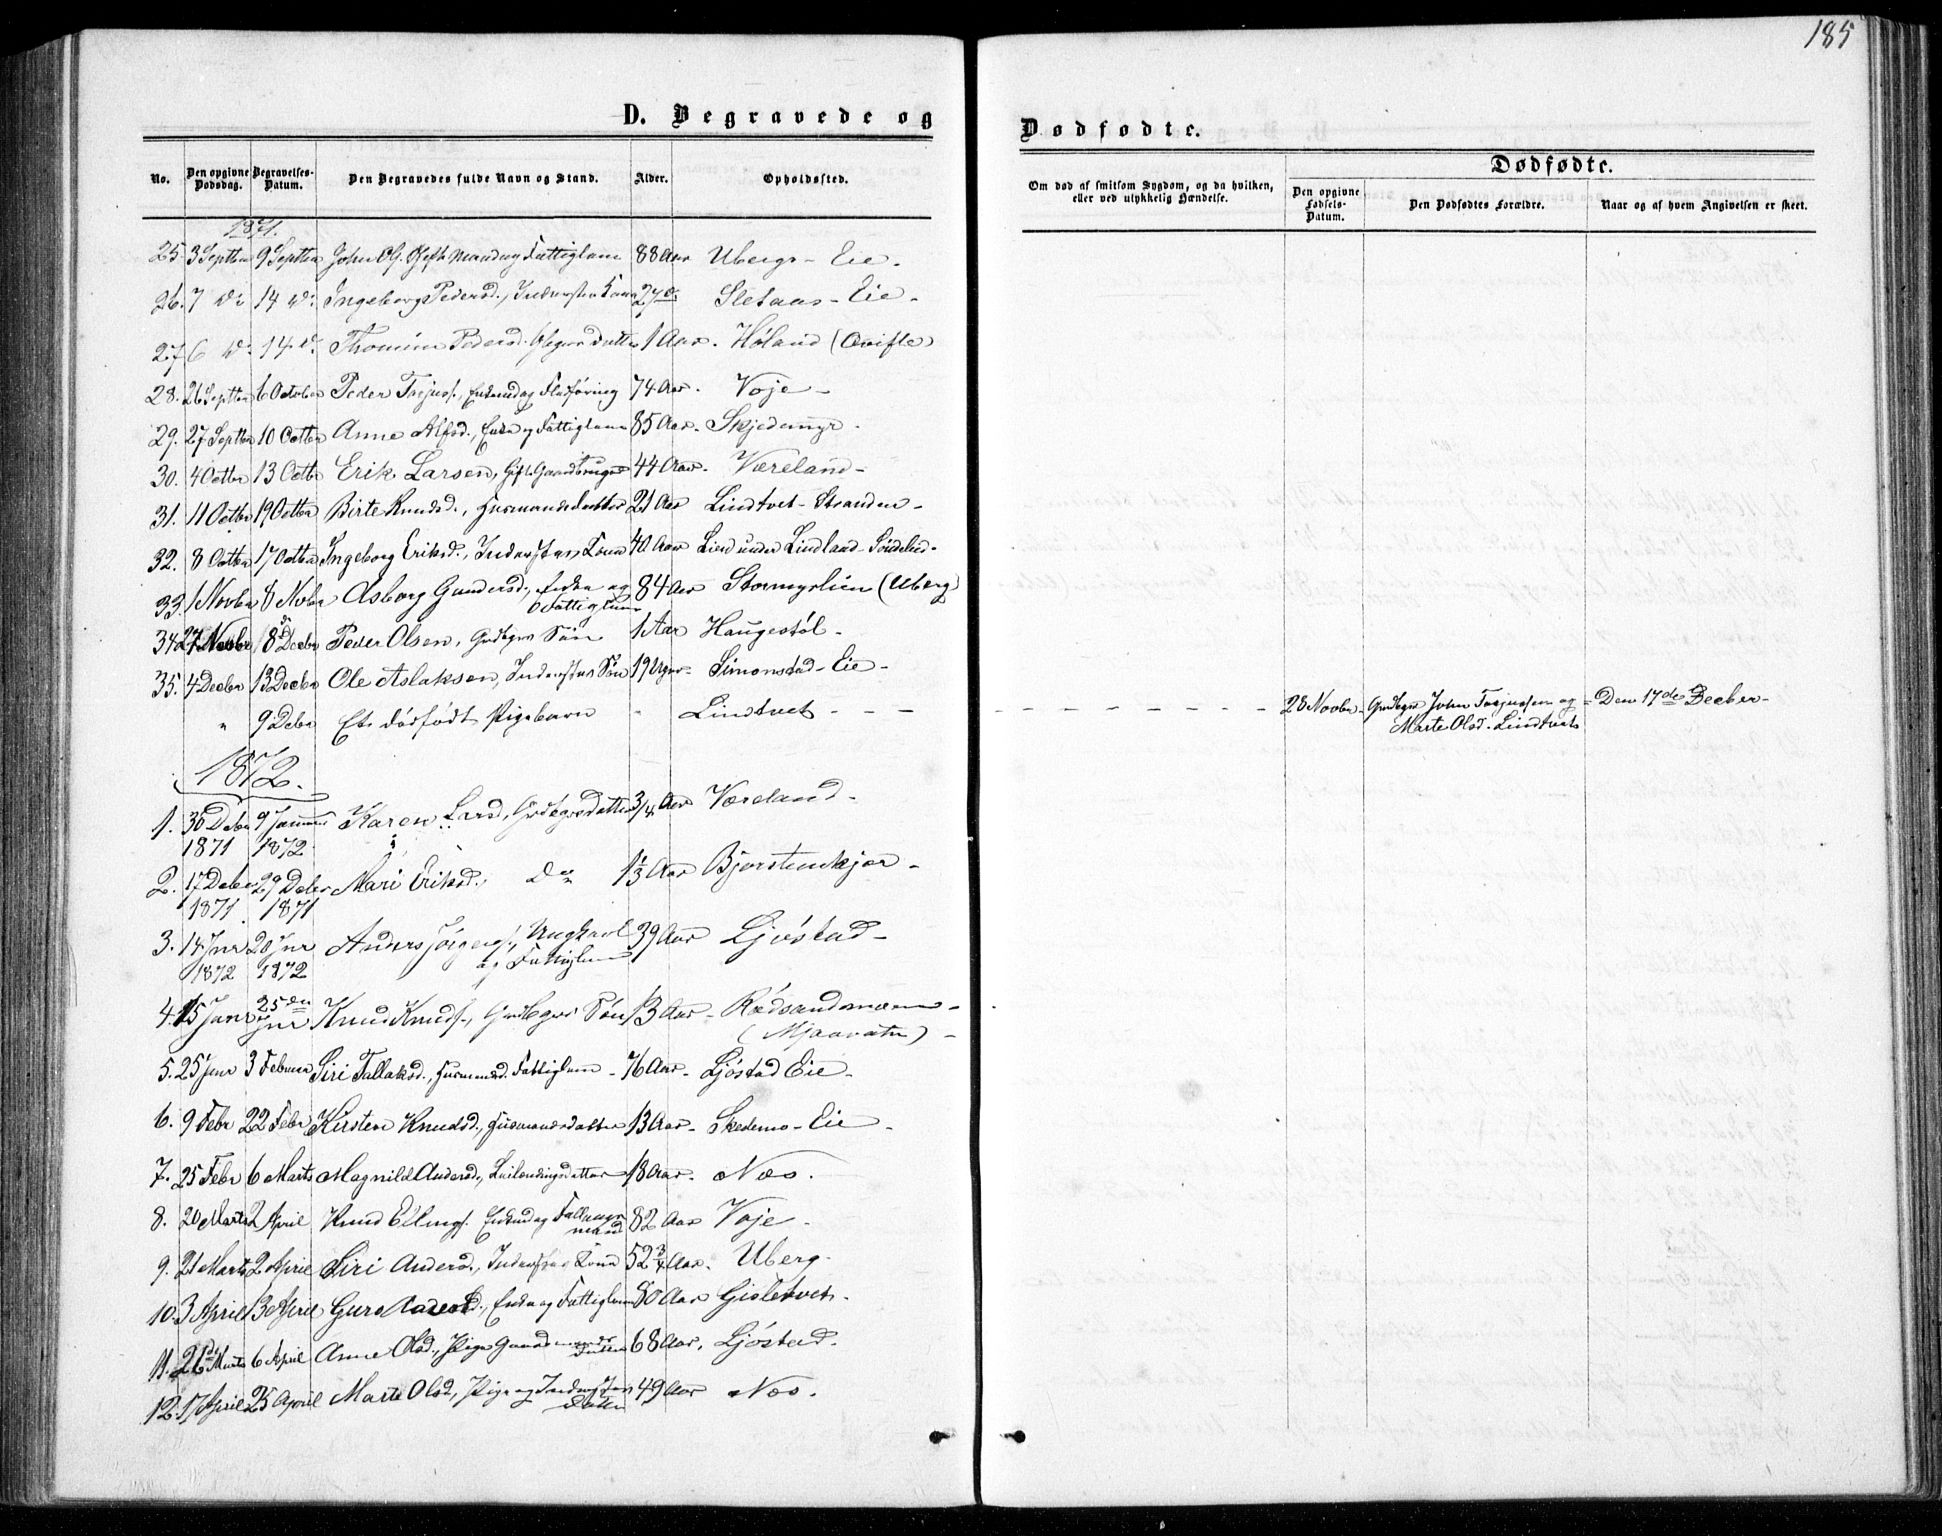 185
D. Begravede og
Dødfødte.
No. Den opgivne Dødsdag. Begravelses-Datum. Den Begravedes fulde Navn og Stand. Alder. Opholdssted.
Om død af smitsom Sygdom, og da hvilken, eller ved ulykkelig Hændelse.
Dødfødte.
Den opgivne Fødsels-Datum. Den Dødfødtes Forældre. Naar og af hvem Angivelsen er skeet.
1871.
25. 3 Septbr 9 Septbr John Fattiglem 88 Aar Ubergs-Eie.
26. 7 do 14 do Ingeborg Pedersd., Inderstes Kone 27 do Sletaas-Eie-
27 6 do 14 do Thomine Pedersd. 1 Aar. Høland (Qvifte)
28. 26 Septbr 6 October Peder Terjus., Enkemd og Fledføring 74 Aar. Voje-
29. 27 Septbr 10 Octbr Anne Alfsd., Enke og Fattiglem 85 Aar. Skjedemyr-
30. 4 Octbr 13 Octbr Erik Larsen, Gift Gaardbruger 44 Aar. Væreland-
31. 11 Octbr 19 Octbr Birte Knudsd., Husmandsdatter 21 Aar Lindtvet-Stranden-
32. 8 Octbr 17 Octbr Ingeborg Eriksd., Inderstes Kone 40 Aar Lien under Lindland-Søndeled-
33. 1 Novbr 8 Novbr Asborg Gundersd., Enke og 84 Aar Stormyrlien (Uberg)
Fattiglem
34 27 Novbr 8de Decbr Peder Olsen, Grdbgers Søn 1 Aar Haugestøl-
35. 4 Decbr 13 Decbr Ole Aslaksen, Inderstes Søn 19 Uger- Simonstad-Eie-
" 9 Debr Et dødfødt Pigebarn " Lindtvet - - - 28 Novbr- Grdbgr John Terjussen og - Den 17de Decber-
Marte Olsd. Lindtvet
1872.
1. 30 Debr 9 Januar Karen Larsd., Grdbgersdatter 3/4 Aar Væreland-
1871 1872.
2. 17 Debr 29 Debr Mari Eriksd., do 1 1/3 Aar Bjorstemkjær-
1871. 1871
3. 14 Jnr 20 Jnr Anders Ungkarl 39 Aar Ljøstad-
1872 1872 og Fattiglem
4. 15 Janr 25de Jnr Knud Knuds., Grdbgers Søn 13 Aar- Rødsandsmoen-
(Mjaavatn)-
5. 25 Janr 3 Februar Siri Tallaksd., Husmandsd. Fattiglem- 76 Aar- Ljøstad Eie-
6. 9 Febr 22 Febr Kirsten Knudsd., Husmandsdatter 13 Aar- Skedemo-Eie-
7. 25 Febr 6 Marts Magnild Andersd., Leilendingsdatter 18 Aar. Næs.
8. 20 Marts 2 April Knud Ellings. Enkemd og 82 Aar Voje-
mand
9. 21 Marts 2 April Siri Andersd., Inderstes Kone 52 3/4 Aar. Uberg-
10. 3 April 13 April Guro Enke og Fattiglem 80 Aar Gisletvet-
11. 26de Marts 6 April Anne Olsd., Pige Gaardmands 68 Aar, Ljøstad.
Datter
12. 17 April 25 April Marte Olsd, Pige og Inderstes 49 Aar Næs.
Datter